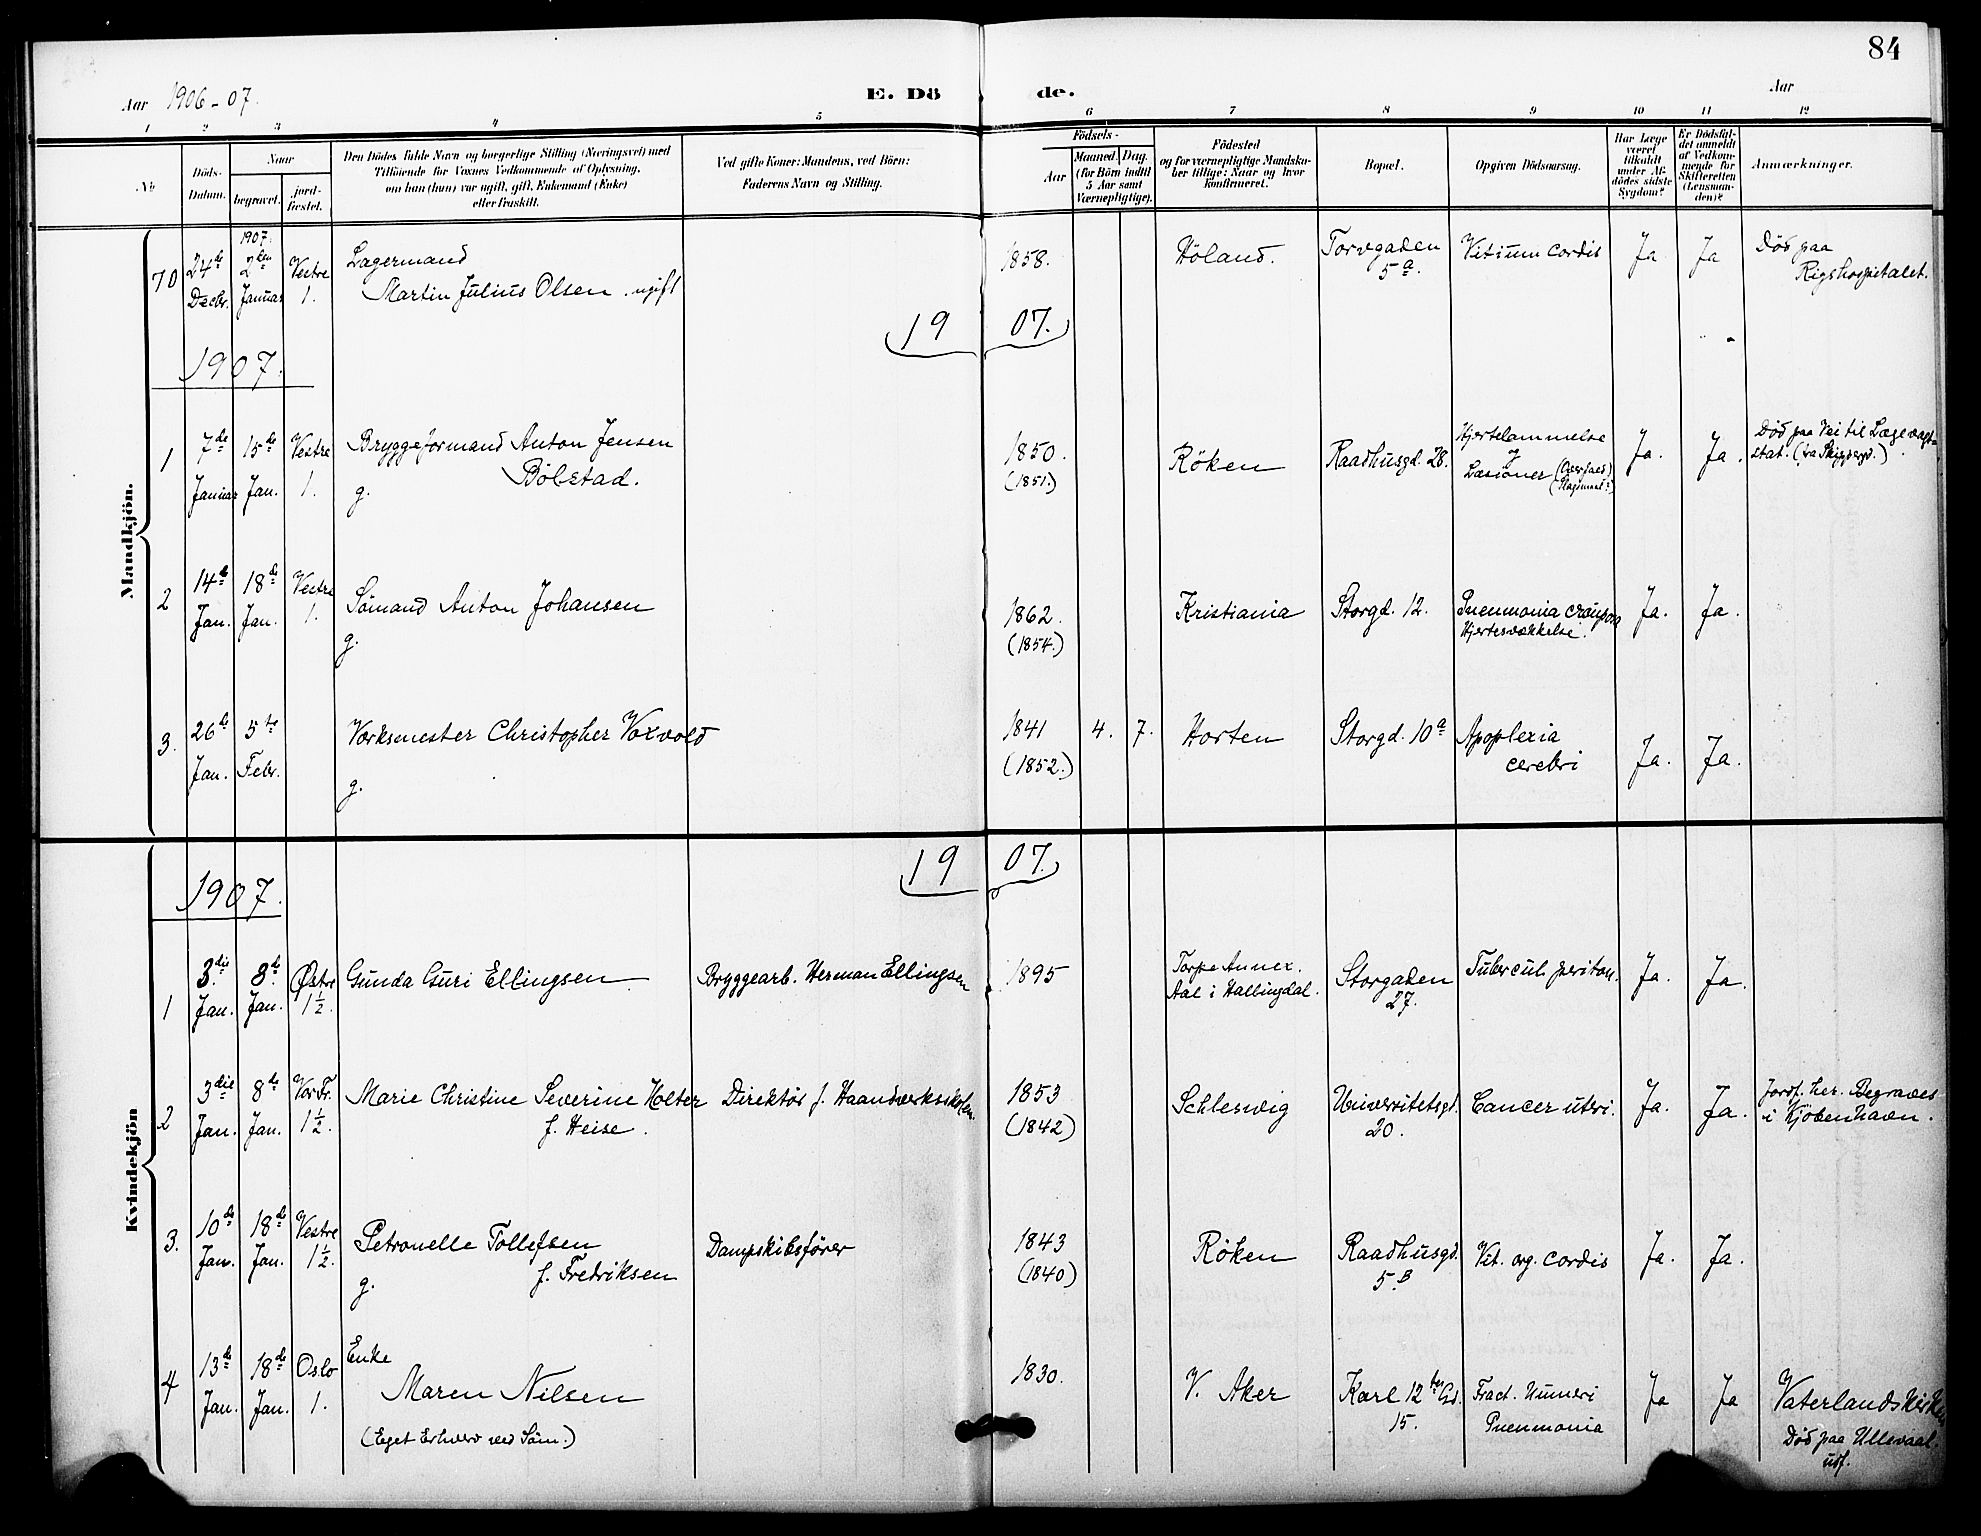 84
Aar 1906-07.
E. Dö de.
Aar
1 2 3 4 5 6 7 8 9 10 11 12
No
Döds-
Datum.
Naar
begravet.
jord-
fæstet.
Den Dödes fulde Navn og borgerlige Stilling (Næringsvei) med
Tilföiende for Voxnes Vedkommende af Oplysning,
om han (hun) var ugift, gift, Enkemand (Enke)
eller fraskilt.
Ved gifte Koner: Mandens, ved Börn:
Faderens Navn og Stilling.
Födsels-
Aar
Maaned. Dag.
(for Börn indtil
5 Aar samt
Værnepligtige).
Födested
og for værnepligtige Mandsku-
ber tillige: Naar og hvor
konfirmeret.
Bopæl.
Opgiven Dödsaarsag.
Har Læge
været
tilkaldt
under Af-
dödes sidste
Sygdom?
Er Dödsfal-
det anmeldt
af Vedkom-
mende for
Skifteretten
(Lensman-
den)?
Anmærkninger.
Mandkjön.
70
24de
Decbr.
1907.
2den
Januar
Vestre
1.
Lagermand
Martin Julius Olsen. ugift
1858.
Höland.
Torvgaden
5a.
Vitium cordis
Ja
Ja
Död paa
Rigshospitalet.
19 07.
1907.
1
7de
Januar
15de
Jan.
Vestre
1.
Bryggeformand Anton Jensen
Bölstad.
g.
1850.
(1851.)
Röken
Raadhusgd. 28.
Hjertelammelse
og
Læsioner (Overfald)
Ja.
Ja.
Död paa Vei til Lægevagt-
stat.
2
14de
Jan.
18de
Jan.
Vestre
1.
Sömand Anton Johansen
g.
1862.
(1854.)
Kristiania
Storgd. 12.
Pneumonia crouposa
Hjertesvækkelse.
Ja.
Ja.
3.
26de
Jan.
5te
Febr.
Værksmester Christopher Voxvold
g.
1841
(1852.)
4.
7.
Horten
Storgd. 10a
Apoplexia
cerebri
Ja.
Ja.
Kvindekjön
19 07.
1907.
1
3die
Jan.
8de
Jan.
Østre
1½.
Gunda Guri Ellingsen
Bryggearb. Herman Ellingsen
1895
Torpe Annex.
Aal i Hallingdal.
Storgaden
27.
Tubercul. periton.
Ja.
Ja.
2
3die
Jan.
8de
Jan.
Vor Fr.
1½.
Marie Christine Severine Holter
f. Heise.
Direktör f. Haandverksskolen.
1853
(1842)
Schleswig
Universitetsgd.
20.
Cancer uteri.
Ja.
Ja.
Jordf. her. Begraves
i Kjöbenhavn.
3.
10de
Jan.
18de
Jan.
Vestre
1½.
Petronelle Tollefsen
f. Fredriksen
g.
Dampskibsförer
1843
(1840)
Röken
Raadhusgd.
5B
Vit. org. cordis
Ja.
Ja.
4
13de
Jan.
18de
Jan.
Oslo
1.
Enke
Maren Nilsen
(Eget Erhverv ved Söm.)
1830.
V. Aker
Karl 12tes Gd.
15.
Fract. Humeri
Pneumonia
Ja
Ja
Vaterlands Kirken
Död paa Ullevaal.
udf.